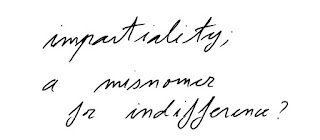 impartiality;
a misnomer
for indifference?